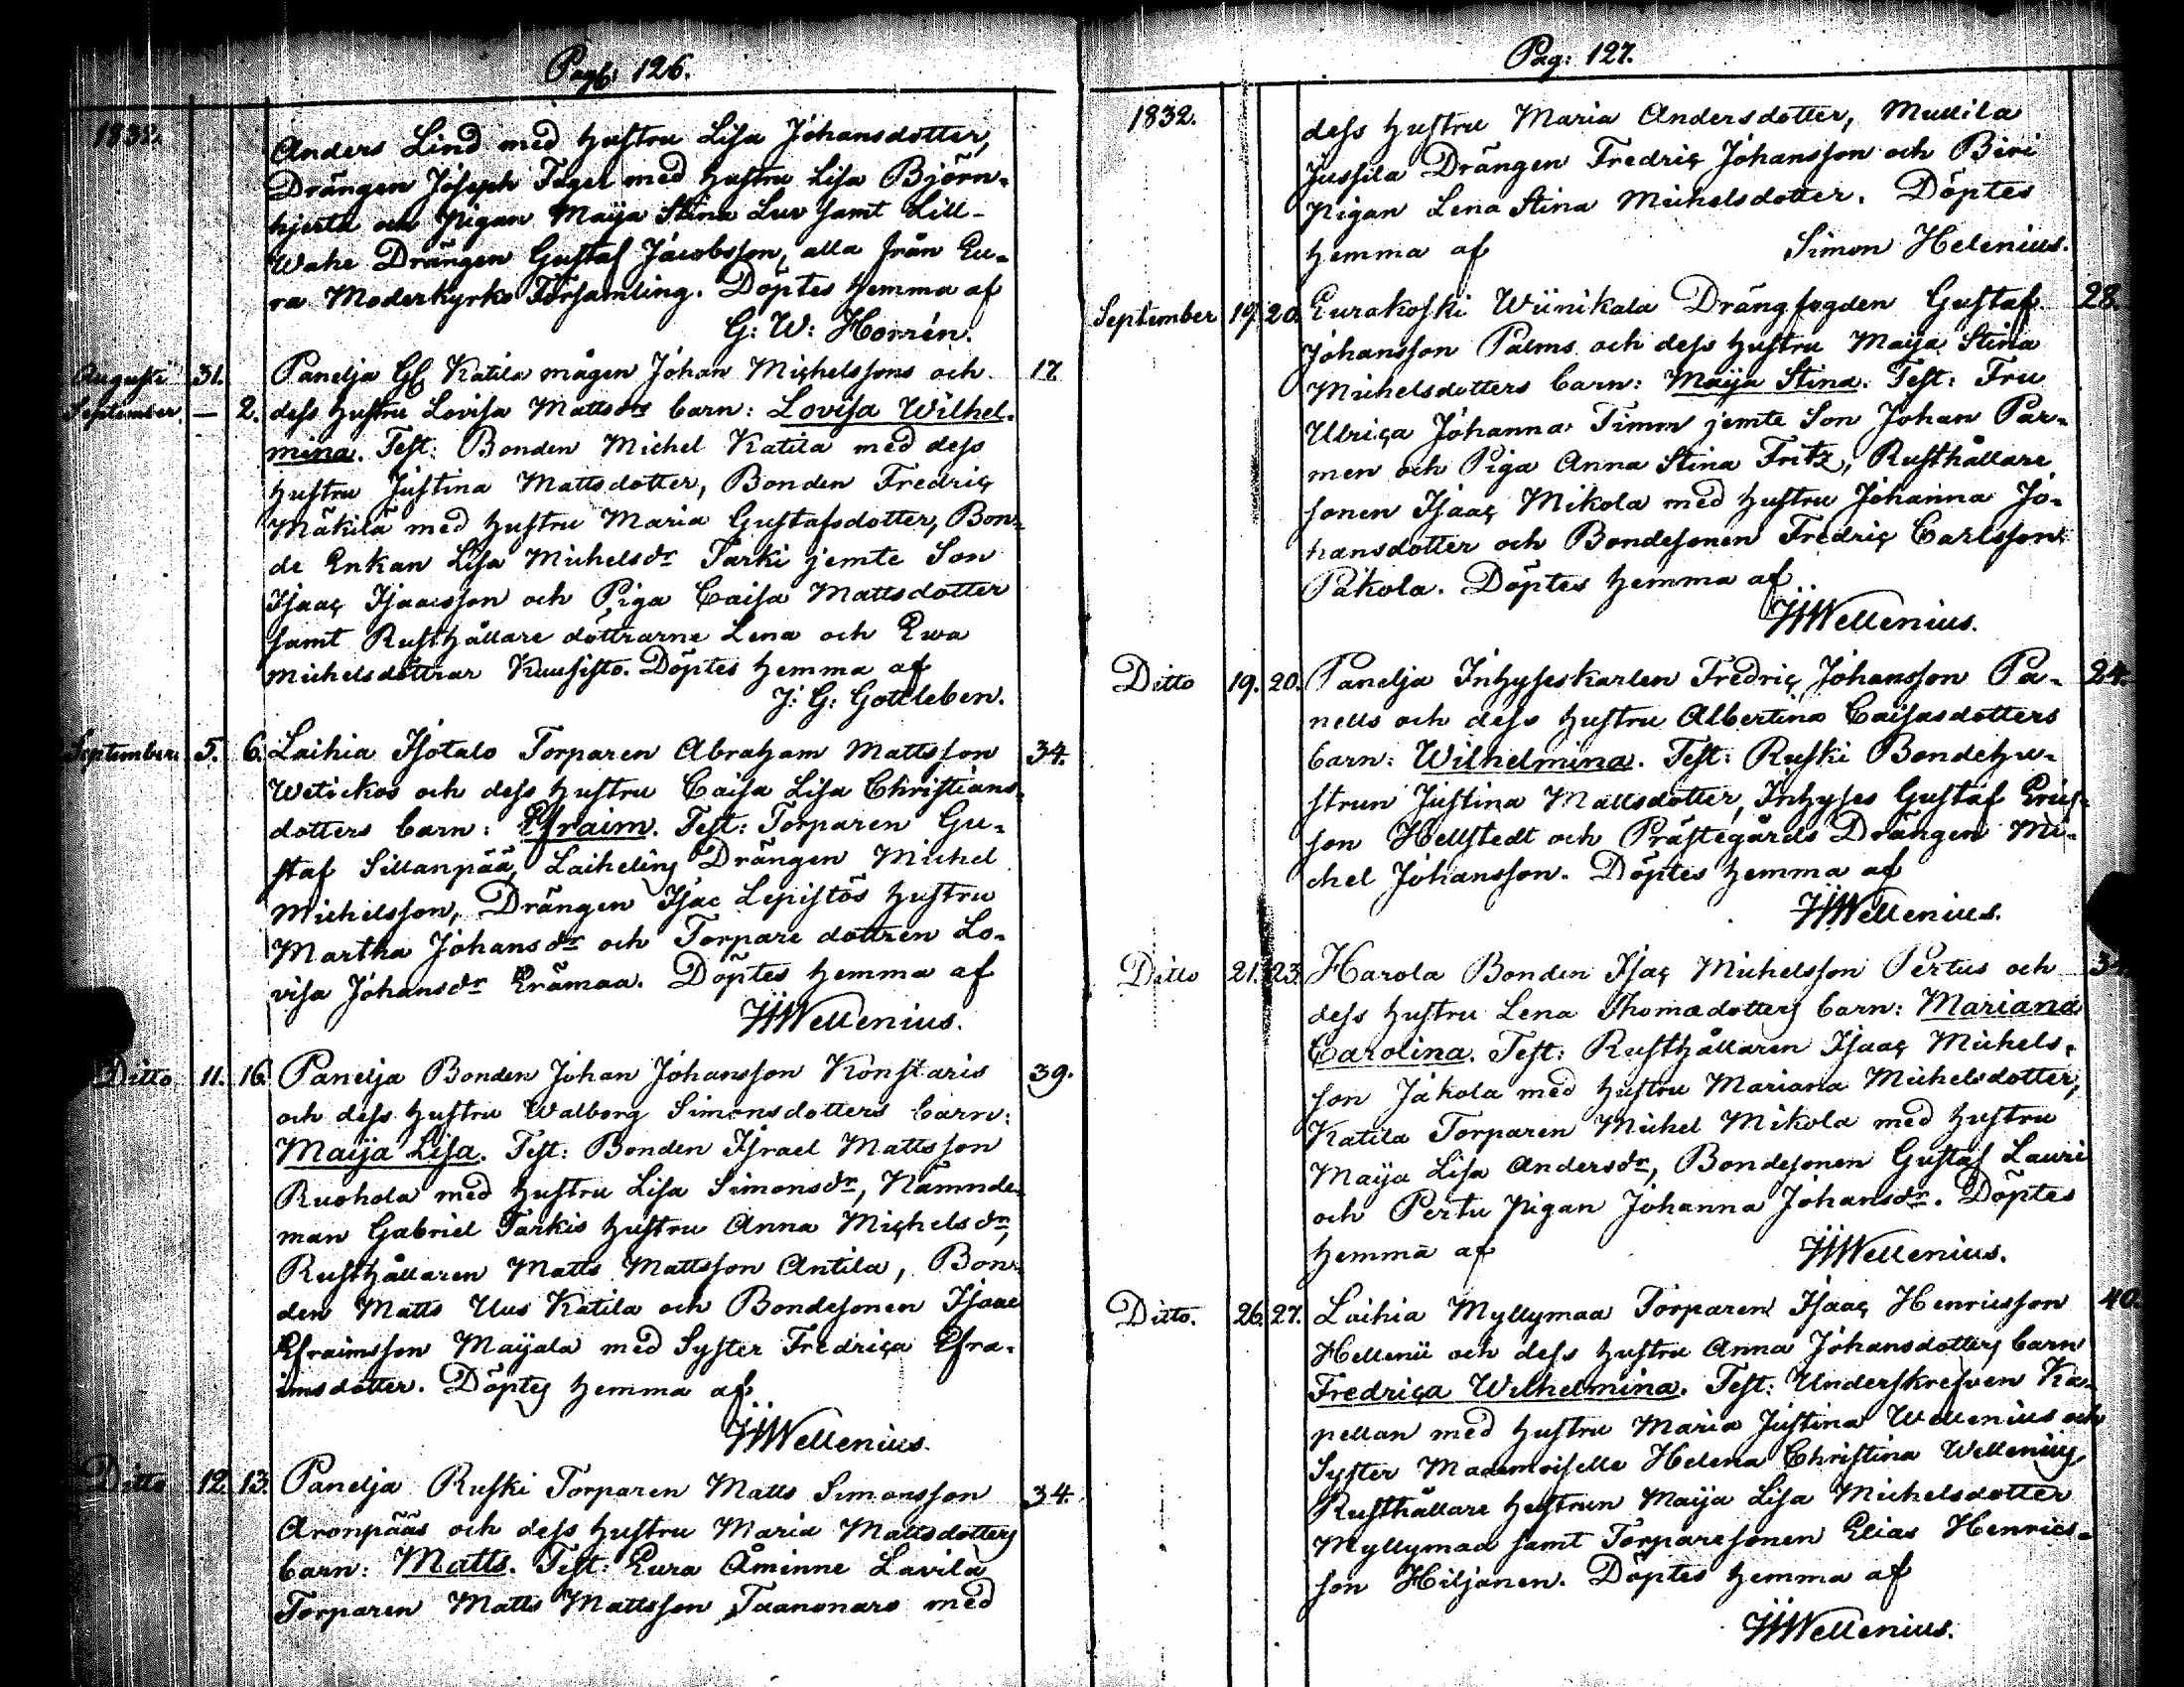 Pag: 126.
1832.
Anders Lind med hustru Lisa Johansdotter,
Drängen Joseph Fagel med hustru Lisa Björn-
hjerta och pigan Maija Stina Luv samt Lill-
Wahe Drängen Gustaf Jacobsson, alla från Eu-
ra Moderkyrko Församling. Döptes hemma af
G: W: Horrén.
Augusti 31. Panelja Gl Katila mågen Johan Michelssons och 17.
September. — 2. dess hustru Lovisa Mattsdrs barn: Lovisa Wilhel-
mina. Test: Bonden Michel Katila med dess
hustru Justina Mattsdotter, Bonden Fredric
Mäkilä med hustru Maria Gustafsdotter, Bon-
de Enkan Lisa Michelsdr Tarki jemte Son
Isaac Isaacsson och Piga Caisa Mattsdotter
samt Rusthållare döttrarne Lena och Ewa
Michelsdöttrar Kuusisto. Döptes hemma af
J: G: Gottleben.
September. 5. 6. Laihia Isotalo Torparen Abraham Mattsson 34.
Wetickos och dess hustru Caisa Lisa Christians-
dotters barn: Efraim. Test: Torparen Gu-
staf Sillanpää, Laihelins Drängen Michel
Michelsson, Drängen Isac Lepistös hustru
Martha Johansdr och Torpare dottren Lo-
visa Johansdr Erämaa. Döptes hemma af
Wellenius.
Ditto 11. 16. Panelja Bonden Johan Johansson Konstaris 39.
och dess hustru Walborg Simonsdotters barn:
Maija Lisa. Test: Bonden Israel Mattsson
Ruohola med hustru Lisa Simonsdr, Nämnde-
man Gabriel Tarkis hustru Anna Michelsdr,
Rusthållaren Matts Mattsson Antila, Bon-
den Matts Uus Katila och Bondesonen Isaac
Efraimsson Maijala med Syster Fredrica Efra-
imsdotter. Döptes hemma af
Wellenius.
Ditto 12. 13. Panelja Ruski Torparen Matts Simonsson 34.
Aronpääs och dess hustru Maria Mattsdotters
barn: Matts. Test: Eura Åminne Lavila
Torparen Matts Mattsson Taanonaro med
Pag: 127.
1832.
dess hustru Maria Andersdotter, Mullila
Jussila Drängen Fredric Johansson och Biri
pigan Lena Stina Michelsdotter. Döptes
hemma af Simon Helenius.
September 19. 20. Eurakoski Wiinikala Drängfogden Gustaf 28.
Johansson Palms och dess hustru Maija Stina
Michelsdotters barn: Maija Stina. Test: Fru
Ulrica Johanna Timm jemte Son Johan Par-
men och Piga Anna Stina Fritz, Rusthållare
sonen Isaac Mikola med hustru Johanna Jo-
hansdotter och Bondesonen Fredric Carlsson
Päkola. Döptes hemma af
Wellenius.
Ditto 19. 20. Panelja Inhyseskarlen Fredric Johansson Pa- 24.
nells och dess hustru Albertina Caisasdotters
barn: Wilhelmina. Test: Ruski Bondehu-
strun Justina Mattsdotter, Inhyses Gustaf Erics-
son Hellstedt och Prästegårds Drängen Mi-
chel Johansson. Döptes hemma af
Wellenius.
Ditto 21. 23. Harola Bonden Isac Michelsson Pertus och 34.
dess hustru Lena Thomædotters barn: Mariana
Carolina. Test: Rusthållaren Isaac Michels-
son Jákola med hustru Mariana Michelsdotter,
Katila Torparen Michel Mikola med hustru
Maija Lisa Andersdr, Bondesonen Gustaf Lauri
och Pertu pigan Johanna Johansdr. Döptes
hemma af Wellenius.
Ditto. 26. 27. Laihia Myllymaa Torparen Isaac Henricsson 40.
Hellenii och dess hustru Anna Johansdotters barn
Fredrica Wilhelmina. Test: Underskrefven Ka-
pellan med hustru Maria Justina Wellenius och
Syster Mademoiselle Helena Christina Wellenius,
Rusthållare hustrun Maija Lisa Michelsdotter
Myllymaa samt Torparesonen Elias Henrics-
son Hiljanen. Döptes hemma af
Wellenius.